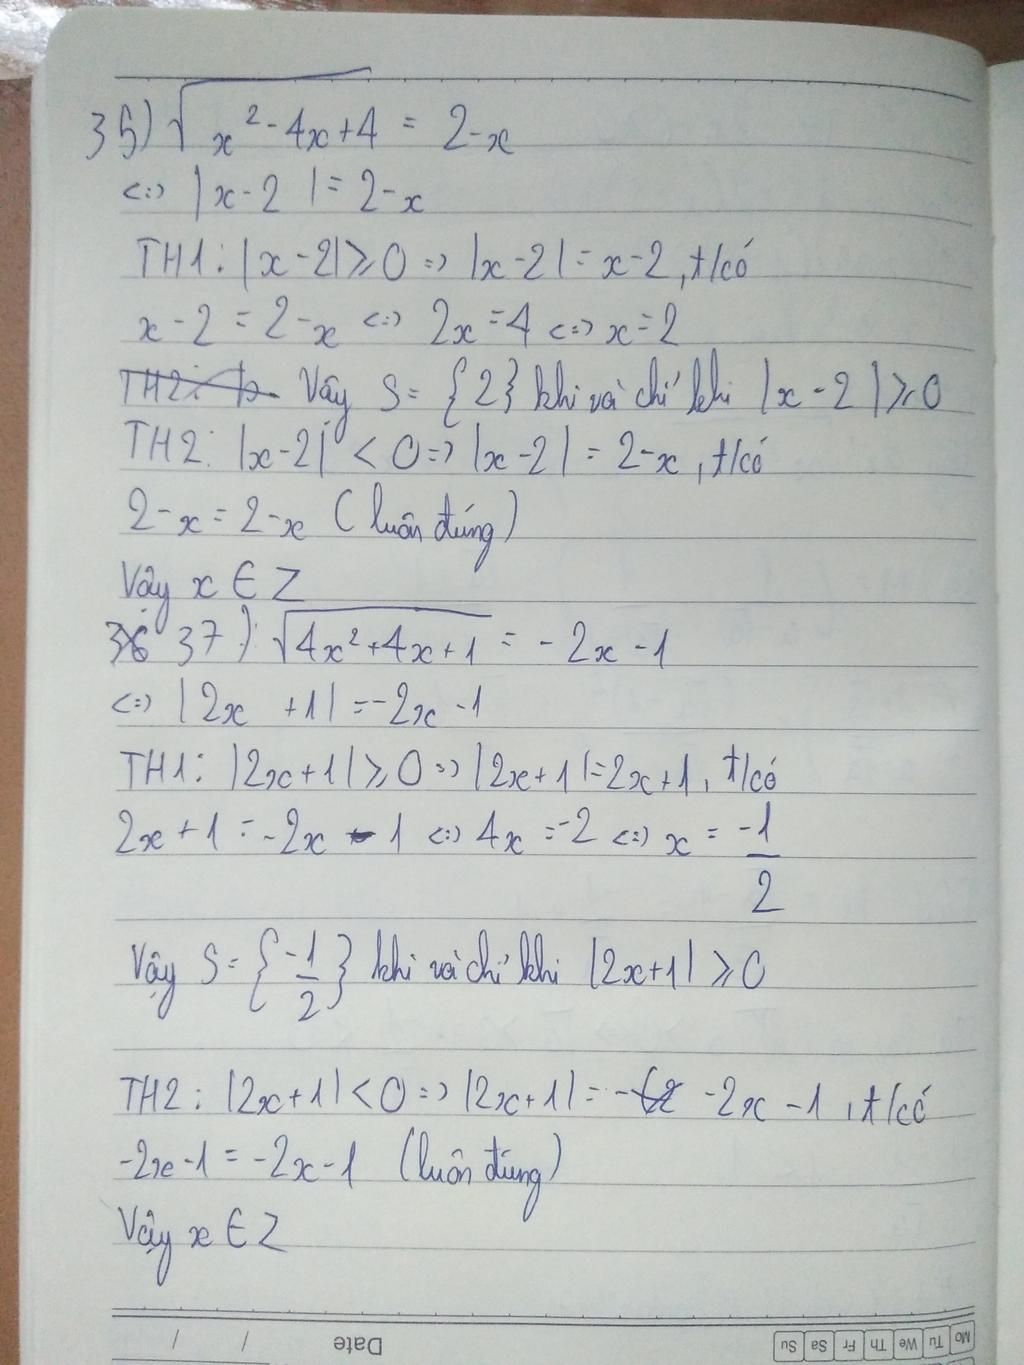 35) √(x² - 4x + 4) = 2 - x
<=> |x - 2| = 2 - x
TH1: |x - 2| ≥ 0 => |x - 2| = x - 2, t/có
x - 2 = 2 - x <=> 2x = 4 <=> x = 2
Vậy S = {2} khi và chỉ khi |x - 2| ≥ 0
TH2: |x - 2| < 0 => |x - 2| = 2 - x, t/có
2 - x = 2 - x (luôn đúng)
Vậy x ∈ Z
37) √(4x² + 4x + 1) = - 2x - 1
<=> |2x + 1| = -2x - 1
TH1: |2x + 1| ≥ 0 => |2x + 1| = 2x + 1, t/có
2x + 1 = -2x - 1 <=> 4x = -2 <=> x = -1/2
Vậy S = {-1/2} khi và chỉ khi |2x + 1| ≥ 0
TH2: |2x + 1| < 0 => |2x + 1| = -2x - 1, t/có
-2x - 1 = -2x - 1 (luôn đúng)
Vậy x ∈ Z
Date / /
Mo Tu We Th Fr Sa Su